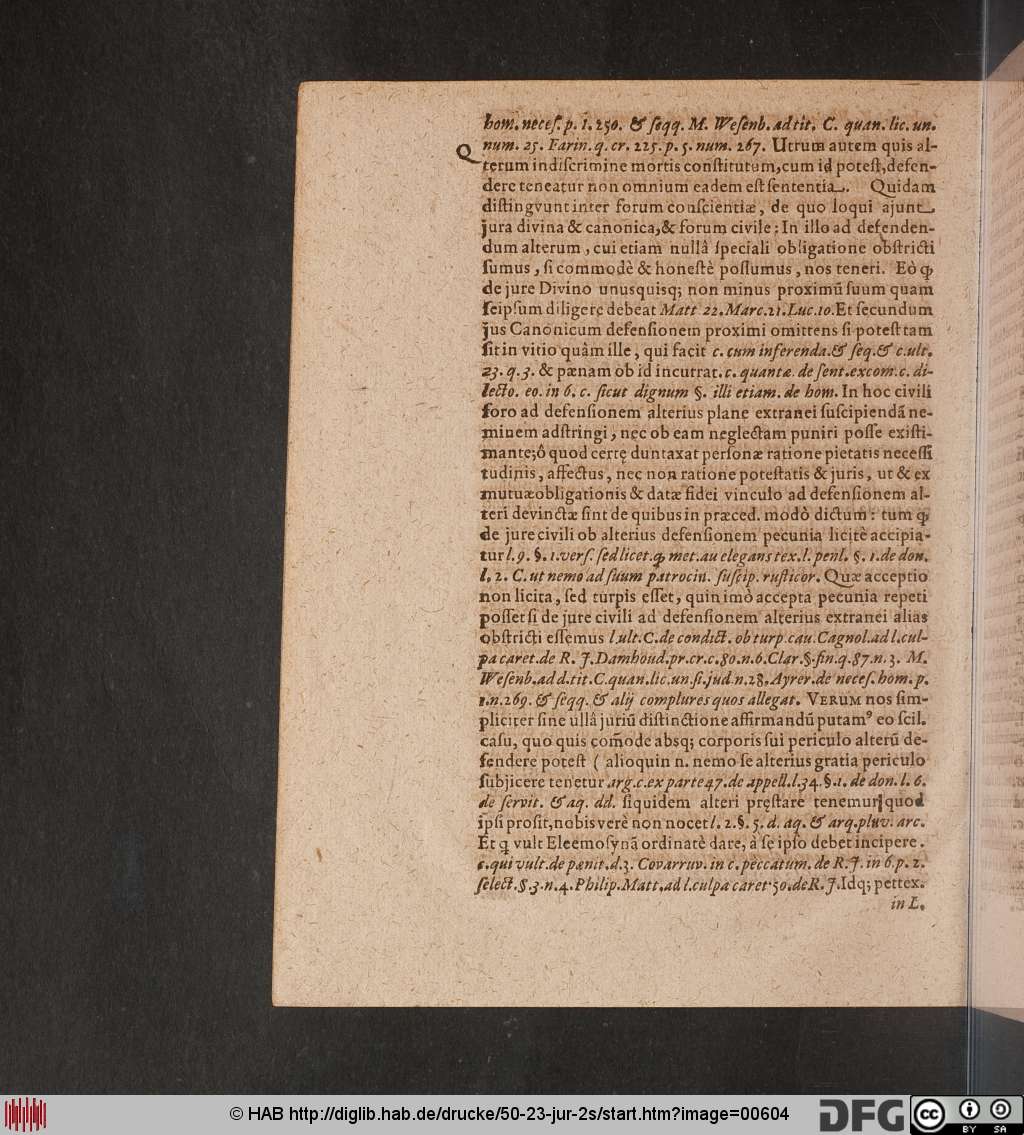 hom. neces. p. 1. 250. & seqq. M. Wesenb. ad tit. C. quan. lic. un.
num. 25. Farin. q. cr. 225. p. 5. num. 267. Utrum autem quis al-
Q
terum indiscrimine mortis constitutum, cum id potest, defen-
dere teneatur non omnium eadem est sententia. Quidam
distingvunt inter forum conscientiæ, de quo loqui ajunt
jura divina & canonica, & forum civile: In illo ad defenden-
dum alterum, cui etiam nullâ speciali obligatione obstricti
sumus, si commodè & honestè possumus, nos teneri. Eò ꝙ
de jure Divino unusquisq; non minus proximũ suum quam
seipsum diligere debeat Matt 22. Marc. 21. Luc. 10. Et secundum
jus Canonicum defensionem proximi omittens si potest tam
sit in vitio quàm ille, qui facit c. cum inferenda. & seq. & c. ult.
23. q. 3. & pænam ob id incutrat. c. quantæ de sent. excom. c. di-
lecto. eo. in 6. c. sicut dignum §. illi etiam. de hom. In hoc civili
foro ad defensionem alterius plane extranei suscipiendã ne-
minem adstringi, nec ob eam neglectam puniri posse existi-
mante; ô quod certę duntaxat personæ ratione pietatis necessi
tudinis, affectus, nec non ratione potestatis & juris, ut & ex
mutuæ obligationis & datæ fidei vinculo ad defensionem al-
teri devinctæ sint de quibus in præced. modò dictum: tum ꝙ
de jure civili ob alterius defensionem pecunia licitè accipia-
tur l. 9. §. 1. vers. sed licet. ꝙ met. au elegans tex. l. penl. §. 1. de don.
l. 2. C. ut nemo ad suum patrocin. suscip. rusticor. Quæ acceptio
non licita, sed turpis esset, quin imò accepta pecunia repeti
posset si de jure civili ad defensionem alterius extranei alias
obstricti essemus l. ult. C. de condict. ob turp. cau. Cagnol. ad l. cul-
pa caret. de R. J. Damhoud. pr. cr. c. 80. n. 6. Clar. §. fin. q. 87. n. 3. M.
Wesenb. ad d. tit. C. quan. lic. un. si. jud n. 28. Ayrer. de neces. hom. p.
1. n. 269. & seqq. & alij complures quos allegat. VERUM nos sim-
pliciter sine ullâ juriũ distinctione affirmandũ putamꝰ eo scil.
casu, quo quis com̃ode absq; corporis sui periculo alterũ de-
fendere potest ( alioquin n. nemo se alterius gratia periculo
subjicere tenetur arg. c. ex parte 47. de appell. l. 34. §. 1. de don. l. 6.
de servit. & aq. dd. siquidem alteri pręstare tenemur quod
ipsi prosit, nobis verè non nocet l. 2. §. 5. d. aq. & arq. pluv. arc.
Et q vult Eleemosynã ordinatè dare, à se ipso debet incipere.
c. qui vult. de pœnit. d. 3. Covarruv. in c. peccatum. de R. J. in 6. p. 2.
select. §. 3. n. 4. Philip. Matt. ad l. culpa caret. 50. de R. J. Idq; per tex.
in L.
© HAB http://diglib.hab.de/drucke/50-23-jur-2s/start.htm?image=00604
DFG
cc
BY SA